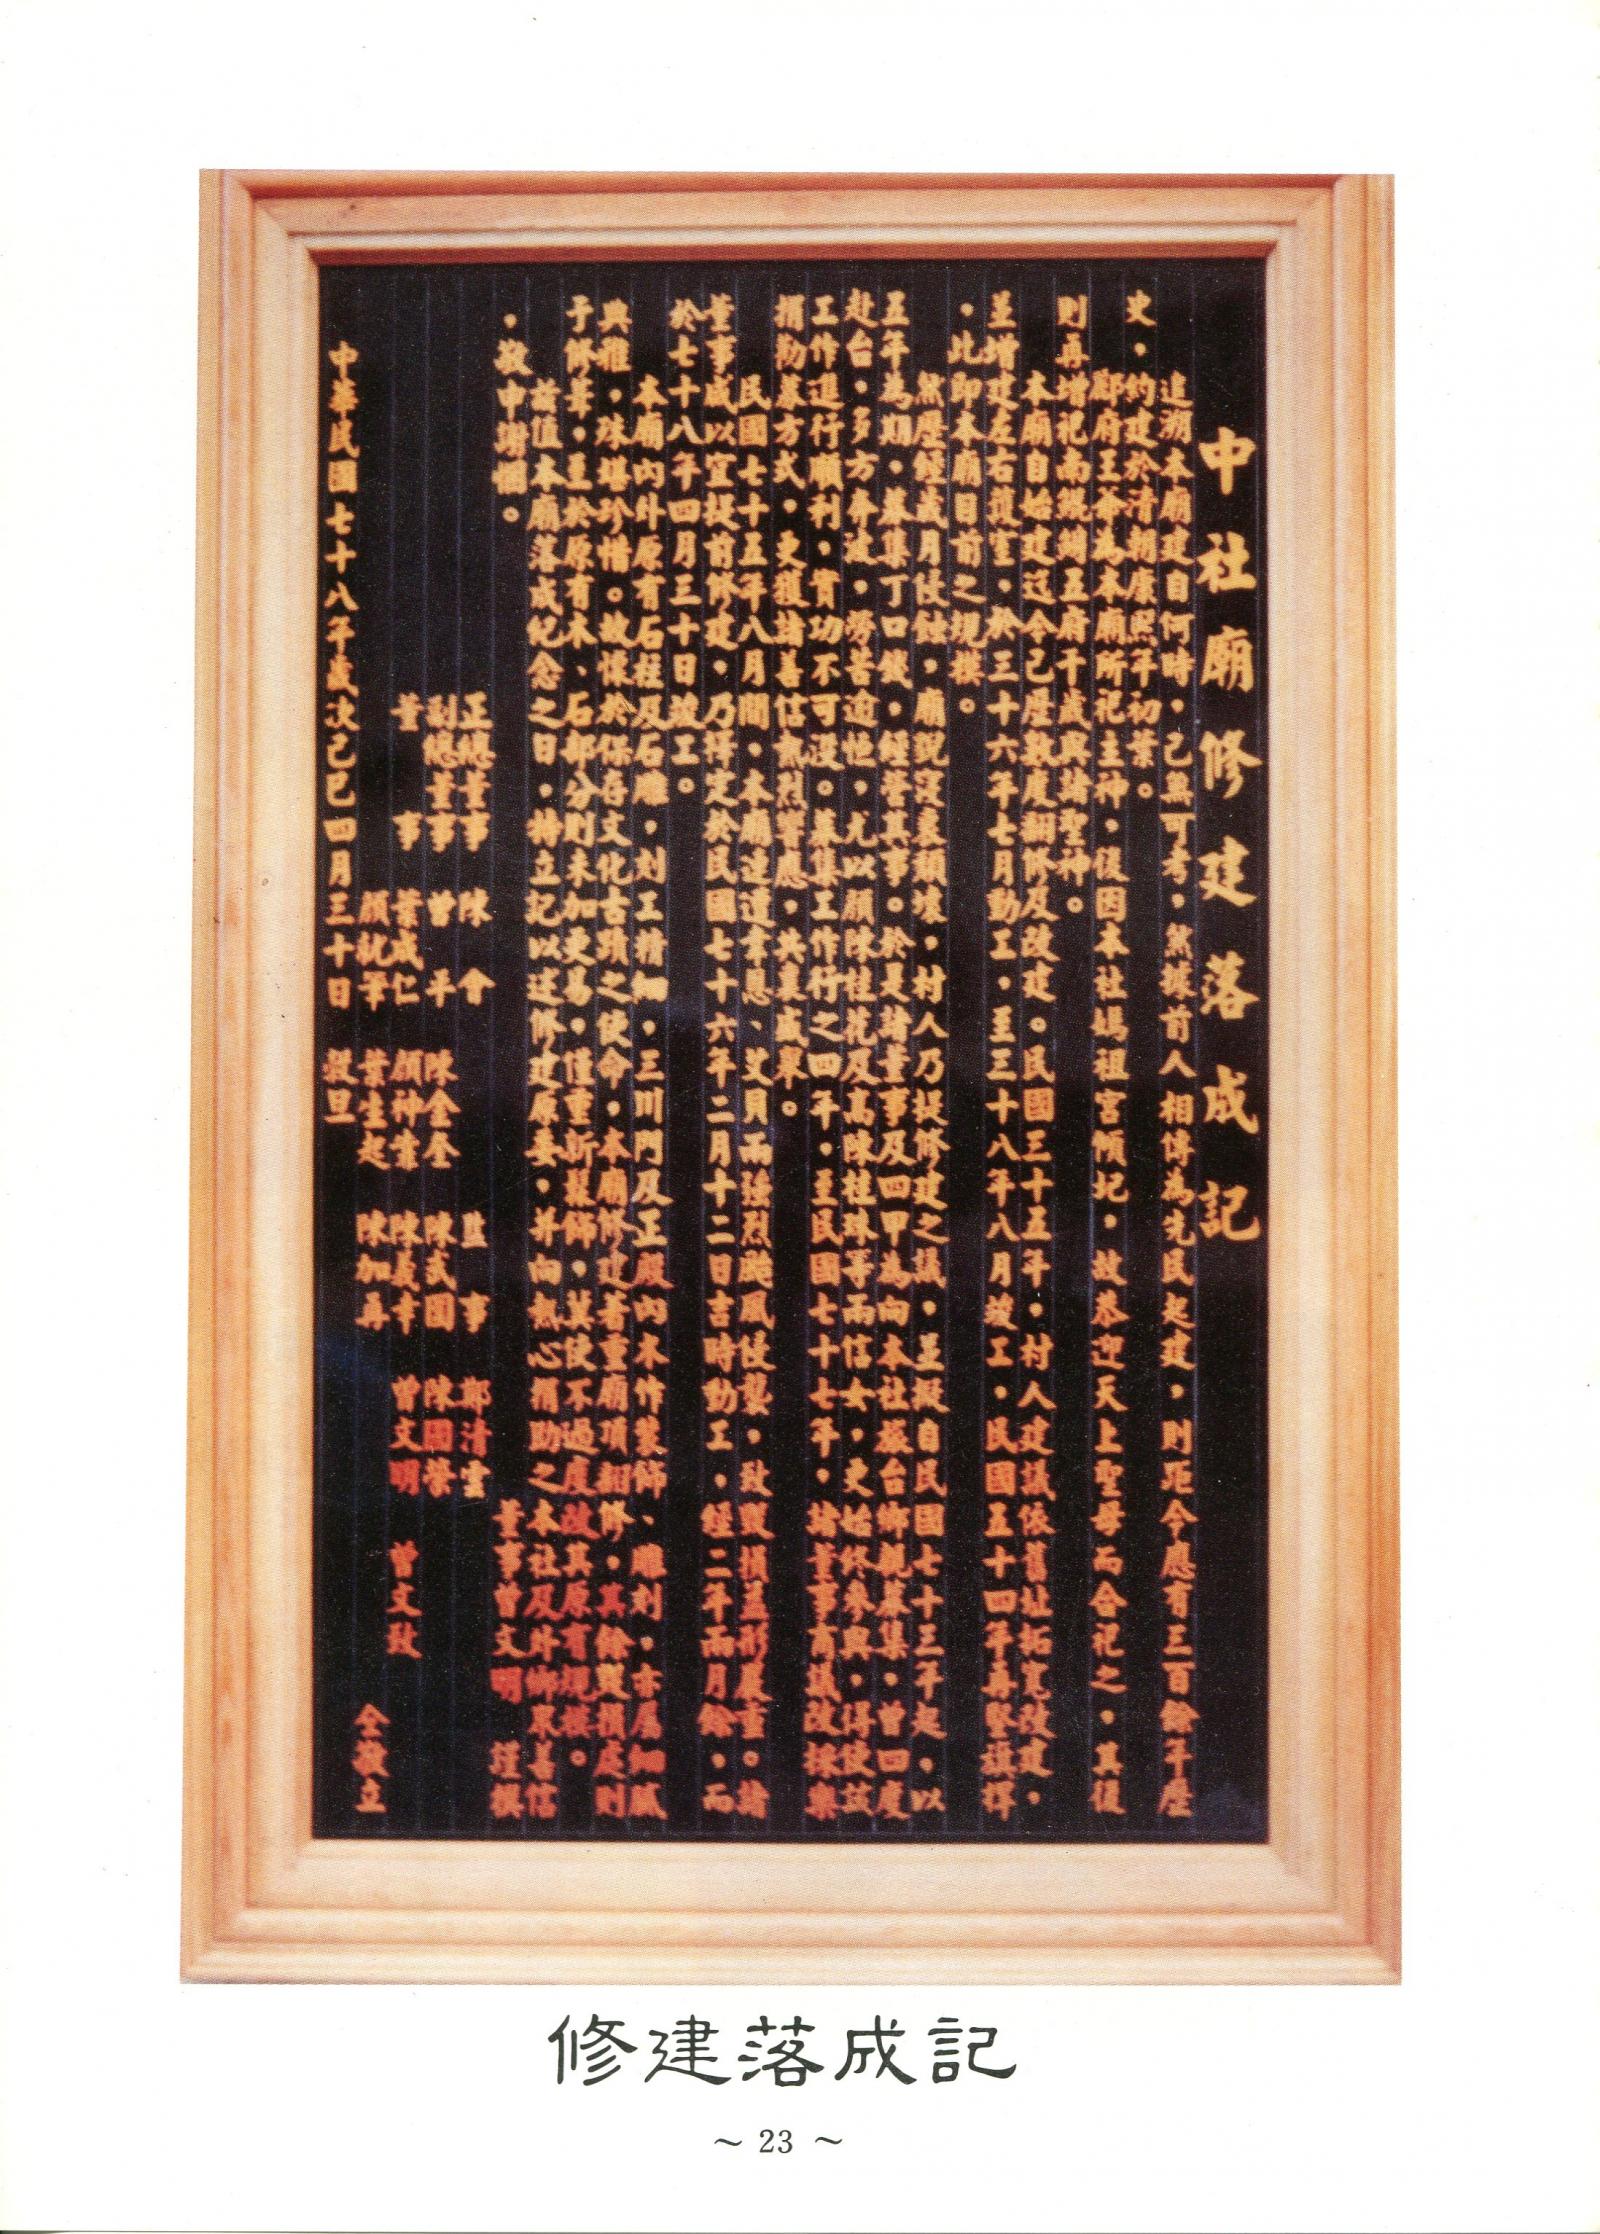 中社廟修建落成記
追溯本廟建自何時，已無可考，然據前人相傳為先民起建，則距今應有三百餘年歷
史，約建於清朝康熙年初葉。
鄭府王爺為本廟所祀主神，後因本社媽祖宮傾圮，故恭迎天上聖母而合祀之，其後
則再增祀南鯤鯓五府千歲與諸聖神。
本廟自始建迄今已歷數度翻修及改建。民國三十五年，村人建議依舊址拓寬改建，
並增建左右護室，於三十六年七月動工，至三十八年八月竣工，民國五十四年再豎旗桿
，此即本廟目前之規模。
然歷經歲月侵蝕，廟貌浸衰頹壞，村人乃提修建之議，並擬自民國七十三年起，以
五年為期，募集丁口錢，經營其事。於是諸董事及四甲為向本社旅台鄉親募集，曾四度
赴台，多方奔波，勞苦逾恒，尤以顏陳桂花及高陳桂珠等兩信女，更始終參與，得使茲
工作進行順利，實功不可沒。募集工作行之四年，至民國七十七年，諸董事商議改採樂
捐勸募方式，更獲諸善信熱烈響應，共襄盛舉。
民國七十五年八月間，本廟連遭韋恩、艾貝兩強烈颱風侵襲，致毀損益形嚴重。諸
董事咸以宜提前修建，乃擇定於民國七十六年二月十二日吉時動工，經二年兩月餘，而
於七十八年四月三十日竣工。
本廟內外原有石柱及石雕，刻工精細，三川門及正殿內木作裝飾、雕刻，亦屬細膩
典雅，殊堪珍惜。故懷於保存文化古蹟之使命，本廟修建著重廟頂翻修，其餘毀損處則
予修葺，至於原有木、石部分則未加更易，僅重新髹飾，冀使不過度改其原有規模。
茲值本廟落成紀念之日，特立記以述修建原委，并向熱心捐助之本社及外鄉眾善信
，敬申謝悃。
董事曾文明 謹撰
正總董事 陳會 監事 鄭清雲
副總董事 曾平 陳金全 陳武國 陳國榮
董事 葉成仁 顏神業 陳義幸 曾文明 曾文致
顏就爭 葉生起 陳加再 仝敬立
中華民國七十八年歲次己巳四月三十日 穀旦
修建落成記
～ 23 ～